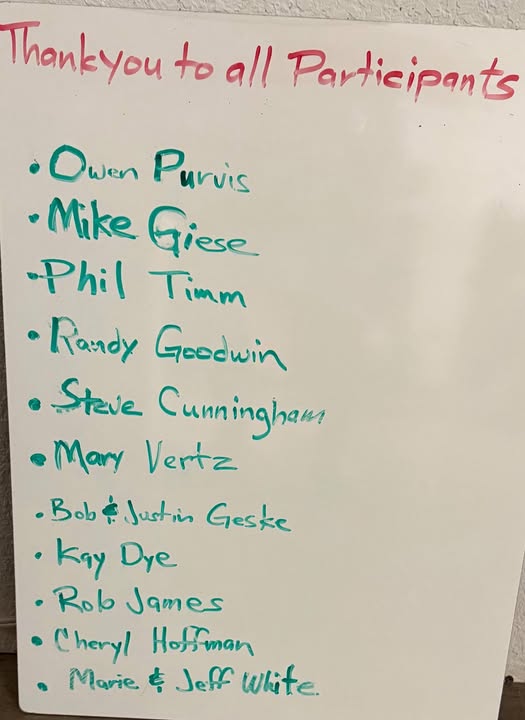 Thankyou to all Participants
• Owen Purvis
• Mike Giese
• Phil Timm
• Randy Goodwin
• Steve Cunningham
• Mary Vertz
• Bob & Justin Geske
• Kay Dye
• Rob James
• Cheryl Hoffman
• Marie & Jeff White